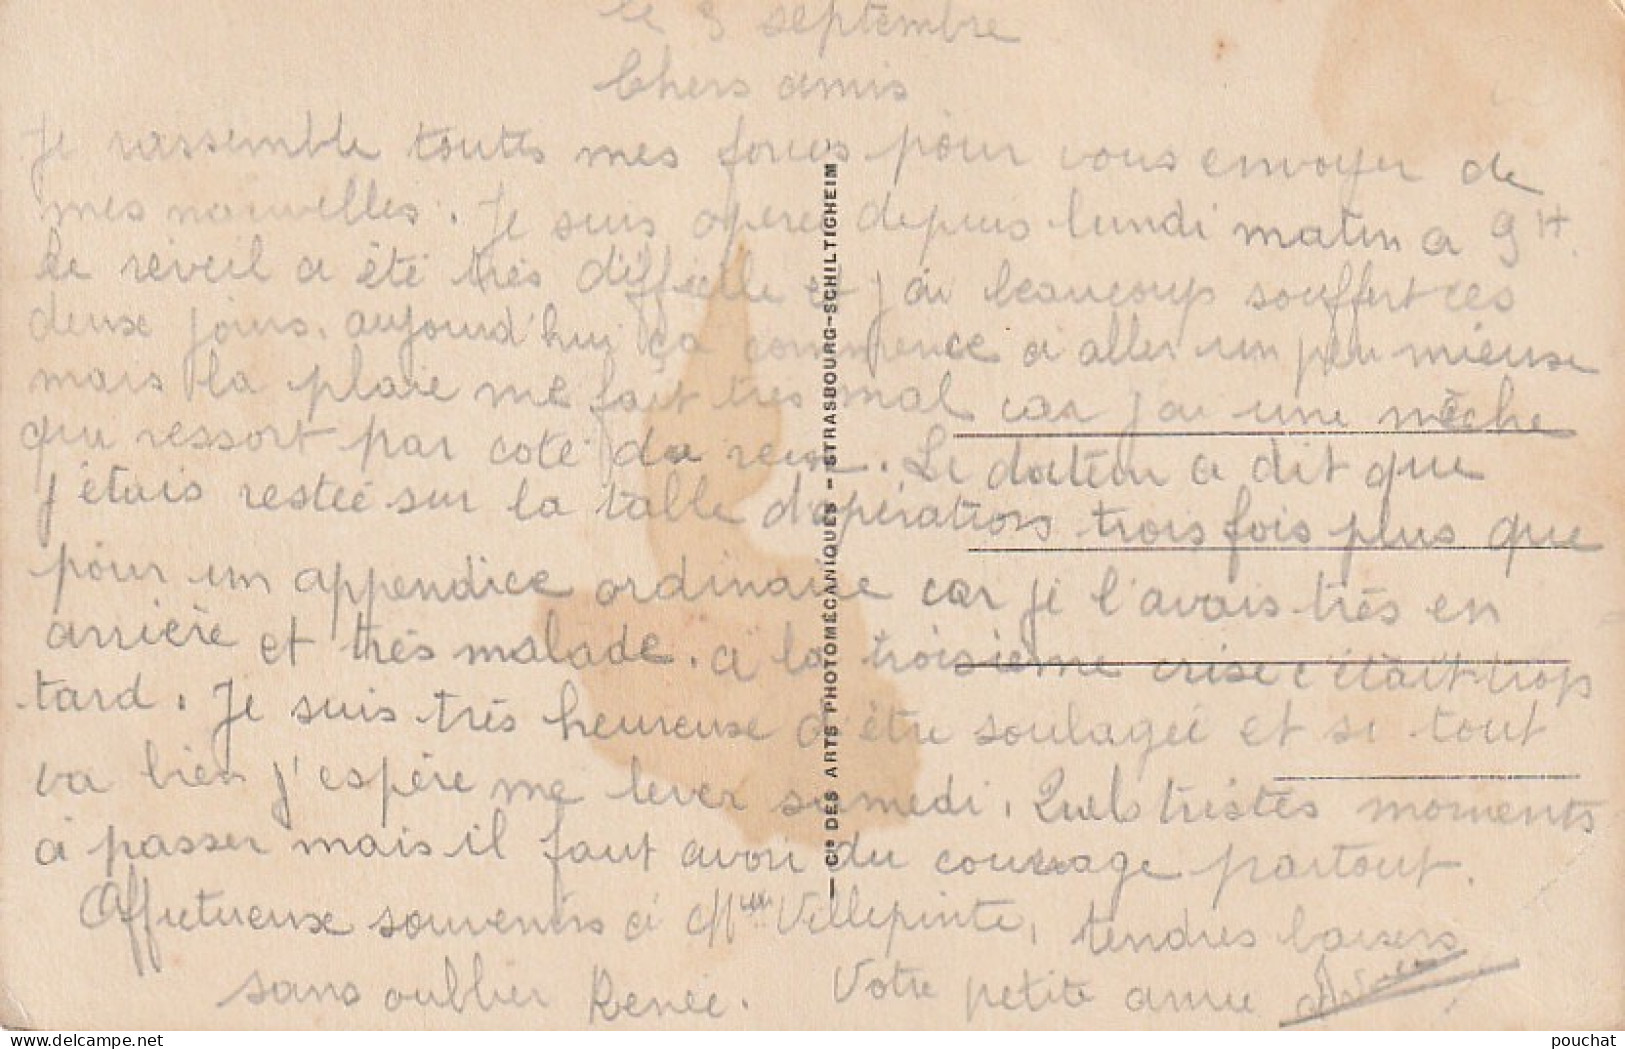 le 3 septembre
Chers amis
Je rassemble toutes mes forces pour vous envoyer de
mes nouvelles. Je suis opéreé depuis lundi matin a 9H.
Le réveil a été très difficille et j'ai beaucoup souffert ces
deux jours. aujourd'hui ça commence a aller un peu mieux
mais la plaie me fait très mal car j'ai une mêche
qui ressort par coté du rein. Le docteur a dit que
j'étais restée sur la table d'opérations trois fois plus que
pour un appendice ordinaire car je l'avais très en
arrière et très malade. a la troisième crise c'était trop
tard. Je suis très heureuse d'être soulagée et si tout
va bien j'espère me lever samedi. Quels tristes moments
a passer mais il faut avoir du courage partout.
Affectueux souvenirs a Mme Villepinte, tendres baisers
sans oublier Renée. Votre petite amie
— Cie DES ARTS PHOTOMÉCANIQUES — STRASBOURG-SCHILTIGHEIM
www.delcampe.net
pouchat